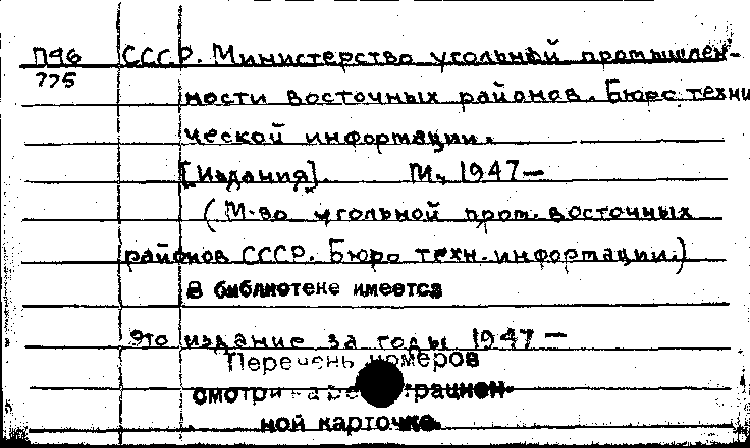 П96 СССР. Министерство угольной промышлен-
775
ности восточных районов. Бюро техни
ческой информации.
[Издания]. М., 1947—
(М-во угольной пром. восточных
районов СССР. Бюро техн. информации.)
В библиотеке имеется
это издание за годы 1947—
Перечень номеров
смотри на регистрацион-
ной карточке.